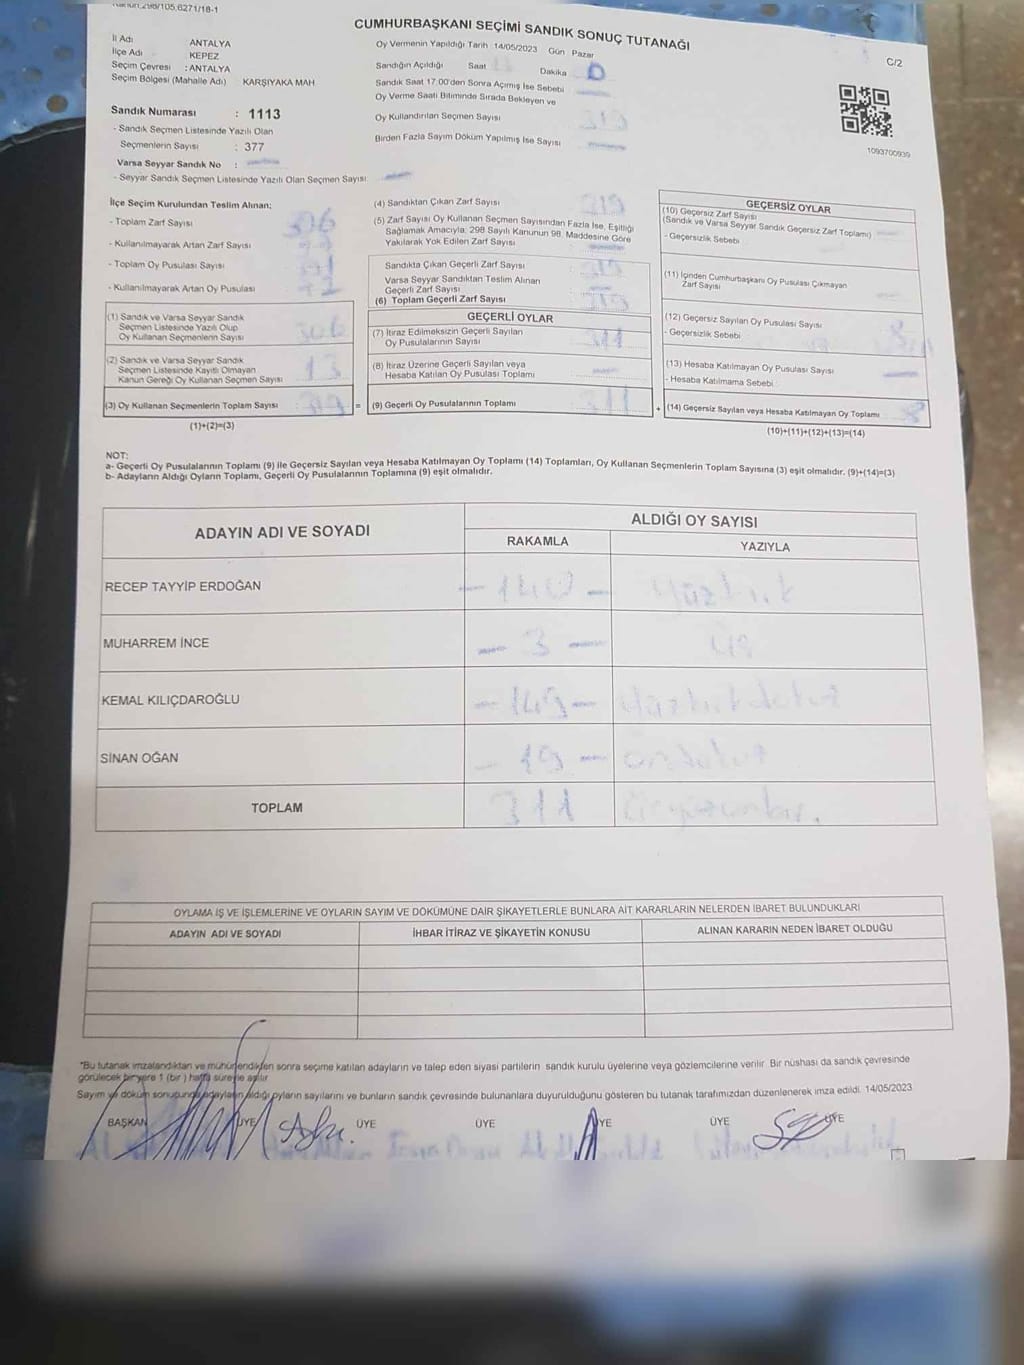 CUMHURBAŞKANI SEÇİMİ SANDIK SONUÇ TUTANAĞI
C/2
İl Adı ANTALYA
İlçe Adı KEPEZ
Seçim Çevresi : ANTALYA
Seçim Bölgesi (Mahalle Adı) KARŞIYAKA MAH
Sandık Numarası : 1113
- Sandık Seçmen Listesinde Yazılı Olan
Seçmenlerin Sayısı : 377
Varsa Seyyar Sandık No :
- Seyyar Sandık Seçmen Listesinde Yazılı Olan Seçmen Sayısı:
Oy Vermenin Yapıldığı Tarih 14/05/2023 Gün : Pazar
Sandığın Açıldığı Saat Dakika 0
Sandık Saat 17.00'den Sonra Açımış İse Sebebi
Oy Verme Saati Bitiminde Sırada Bekleyen ve
Oy Kullandırılan Seçmen Sayısı 319
Birden Fazla Sayım Döküm Yapılmış İse Sayısı
1093700939
İlçe Seçim Kurulundan Teslim Alınan:
- Toplam Zarf Sayısı
- Kullanılmayarak Artan Zarf Sayısı
- Toplam Oy Pusulası Sayısı
- Kullanılmayarak Artan Oy Pusulası
(1) Sandık ve Varsa Seyyar Sandık
Seçmen Listesinde Yazılı Olup
Oy Kullanan Seçmenlerin Sayısı 306
(2) Sandık ve Varsa Seyyar Sandık
Seçmen Listesinde Kayıtlı Olmayan
Kanun Gereği Oy Kullanan Seçmen Sayısı 13
(3) Oy Kullanan Seçmenlerin Toplam Sayısı : 319 =
(1)+(2)=(3)
(4) Sandıktan Çıkan Zarf Sayısı 319
(5) Zarf Sayısı Oy Kullanan Seçmen Sayısından Fazla İse, Eşitliği
Sağlamak Amacıyla, 298 Sayılı Kanunun 98. Maddesine Göre
Yakılarak Yok Edilen Zarf Sayısı
Sandıkta Çıkan Geçerli Zarf Sayısı : 319
Varsa Seyyar Sandıktan Teslim Alınan
Geçerli Zarf Sayısı
(6) Toplam Geçerli Zarf Sayısı : 319
GEÇERLİ OYLAR
(7) İtiraz Edilmeksizin Geçerli Sayılan
Oy Pusulalarının Sayısı 311
(8) İtiraz Üzerine Geçerli Sayılan veya
Hesaba Katılan Oy Pusulası Toplamı
(9) Geçerli Oy Pusulalarının Toplamı 311 +
GEÇERSİZ OYLAR
(10) Geçersiz Zarf Sayısı
(Sandık ve Varsa Seyyar Sandık Geçersiz Zarf Toplamı)
- Geçersizlik Sebebi
(11) İçinden Cumhurbaşkanı Oy Pusulası Çıkmayan
Zarf Sayısı
(12) Geçersiz Sayılan Oy Pusulası Sayısı 8
- Geçersizlik Sebebi
(13) Hesaba Katılmayan Oy Pusulası Sayısı
- Hesaba Katılmama Sebebi
(14) Geçersiz Sayılan veya Hesaba Katılmayan Oy Toplamı 8
(10)+(11)+(12)+(13)=(14)
NOT:
a- Geçerli Oy Pusulalarının Toplamı (9) ile Geçersiz Sayılan veya Hesaba Katılmayan Oy Toplamı (14) Toplamları, Oy Kullanan Seçmenlerin Toplam Sayısına (3) eşit olmalıdır. (9)+(14)=(3)
b- Adayların Aldığı Oyların Toplamı, Geçerli Oy Pusulalarının Toplamına (9) eşit olmalıdır.
ADAYIN ADI VE SOYADI ALDIĞI OY SAYISI
RAKAMLA YAZIYLA
RECEP TAYYİP ERDOĞAN - 140 - Yüzkırk
MUHARREM İNCE - 3 - Üç
KEMAL KILIÇDAROĞLU - 149 - Yüzkırkdokuz
SİNAN OĞAN - 19 - ondokuz
TOPLAM 311 Üçyüzonbir.
OYLAMA İŞ VE İŞLEMLERİNE VE OYLARIN SAYIM VE DÖKÜMÜNE DAİR ŞİKAYETLERLE BUNLARA AİT KARARLARIN NELERDEN İBARET BULUNDUKLARI
ADAYIN ADI VE SOYADI İHBAR İTİRAZ VE ŞİKAYETİN KONUSU ALINAN KARARIN NEDEN İBARET OLDUĞU
*Bu tutanak imzalandıktan ve mühürlendikten sonra seçime katılan adayların ve talep eden siyasi partilerin sandık kurulu üyelerine veya gözlemcilerine verilir. Bir nüshası da sandık çevresinde
görülecek bir yere 1 (bir) hafta süreyle asılır
Sayım ve döküm sonucunda adayların aldığı oyların sayılarını ve bunların sandık çevresinde bulunanlara duyurulduğunu gösteren bu tutanak tarafımızdan düzenlenerek imza edildi. 14/05/2023
BAŞKAN ÜYE ÜYE ÜYE ÜYE ÜYE ÜYE